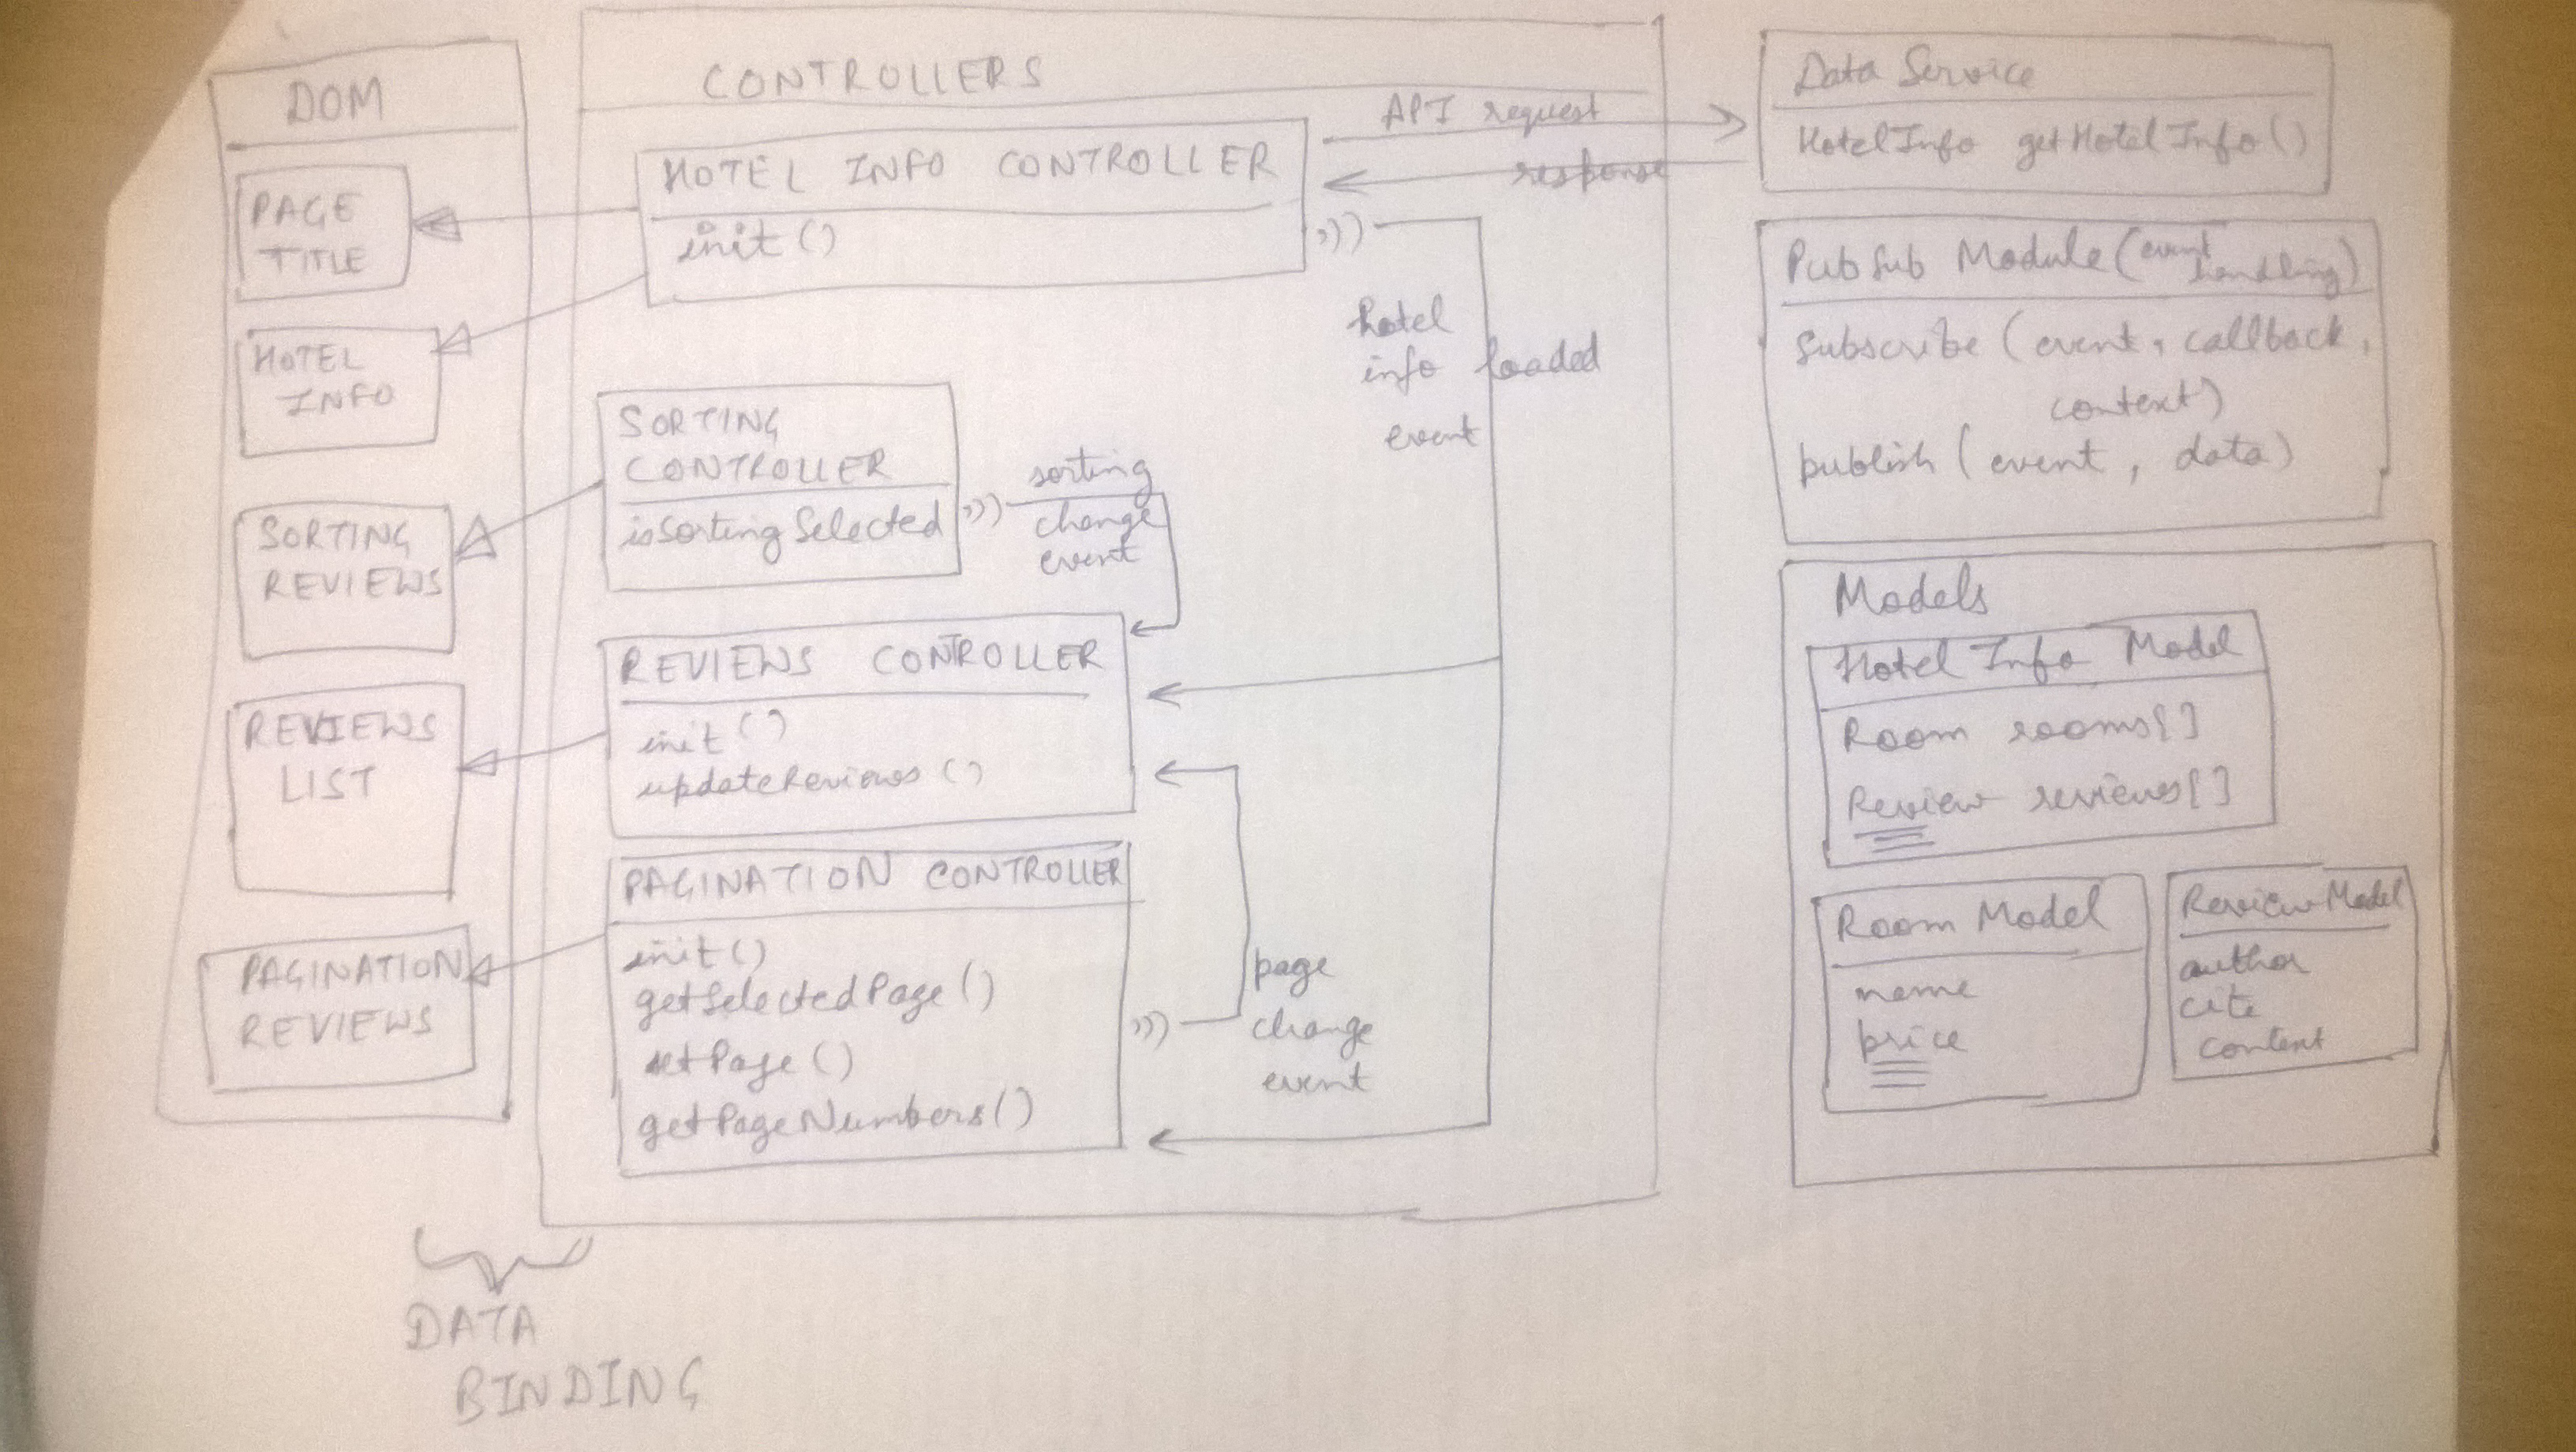 DOM
PAGE
TITLE
HOTEL
INFO
SORTING
REVIEWS
REVIEWS
LIST
PAGINATION
REVIEWS
DATA
BINDING
CONTROLLERS
HOTEL INFO CONTROLLER
init()
API request
response
hotel
info loaded
event
SORTING
CONTROLLER
isSortingSelected
sorting
change
event
REVIEWS CONTROLLER
init()
updateReviews()
PAGINATION CONTROLLER
init()
getSelectedPage()
setPage()
getPageNumbers()
page
change
event
Data Service
HotelInfo getHotelInfo()
PubSub Module (event
handling)
Subscribe (event, callback,
context)
publish (event, data)
Models
Hotel Info Model
Room rooms[]
Review reviews[]
Room Model
name
price
Review Model
author
cite
content